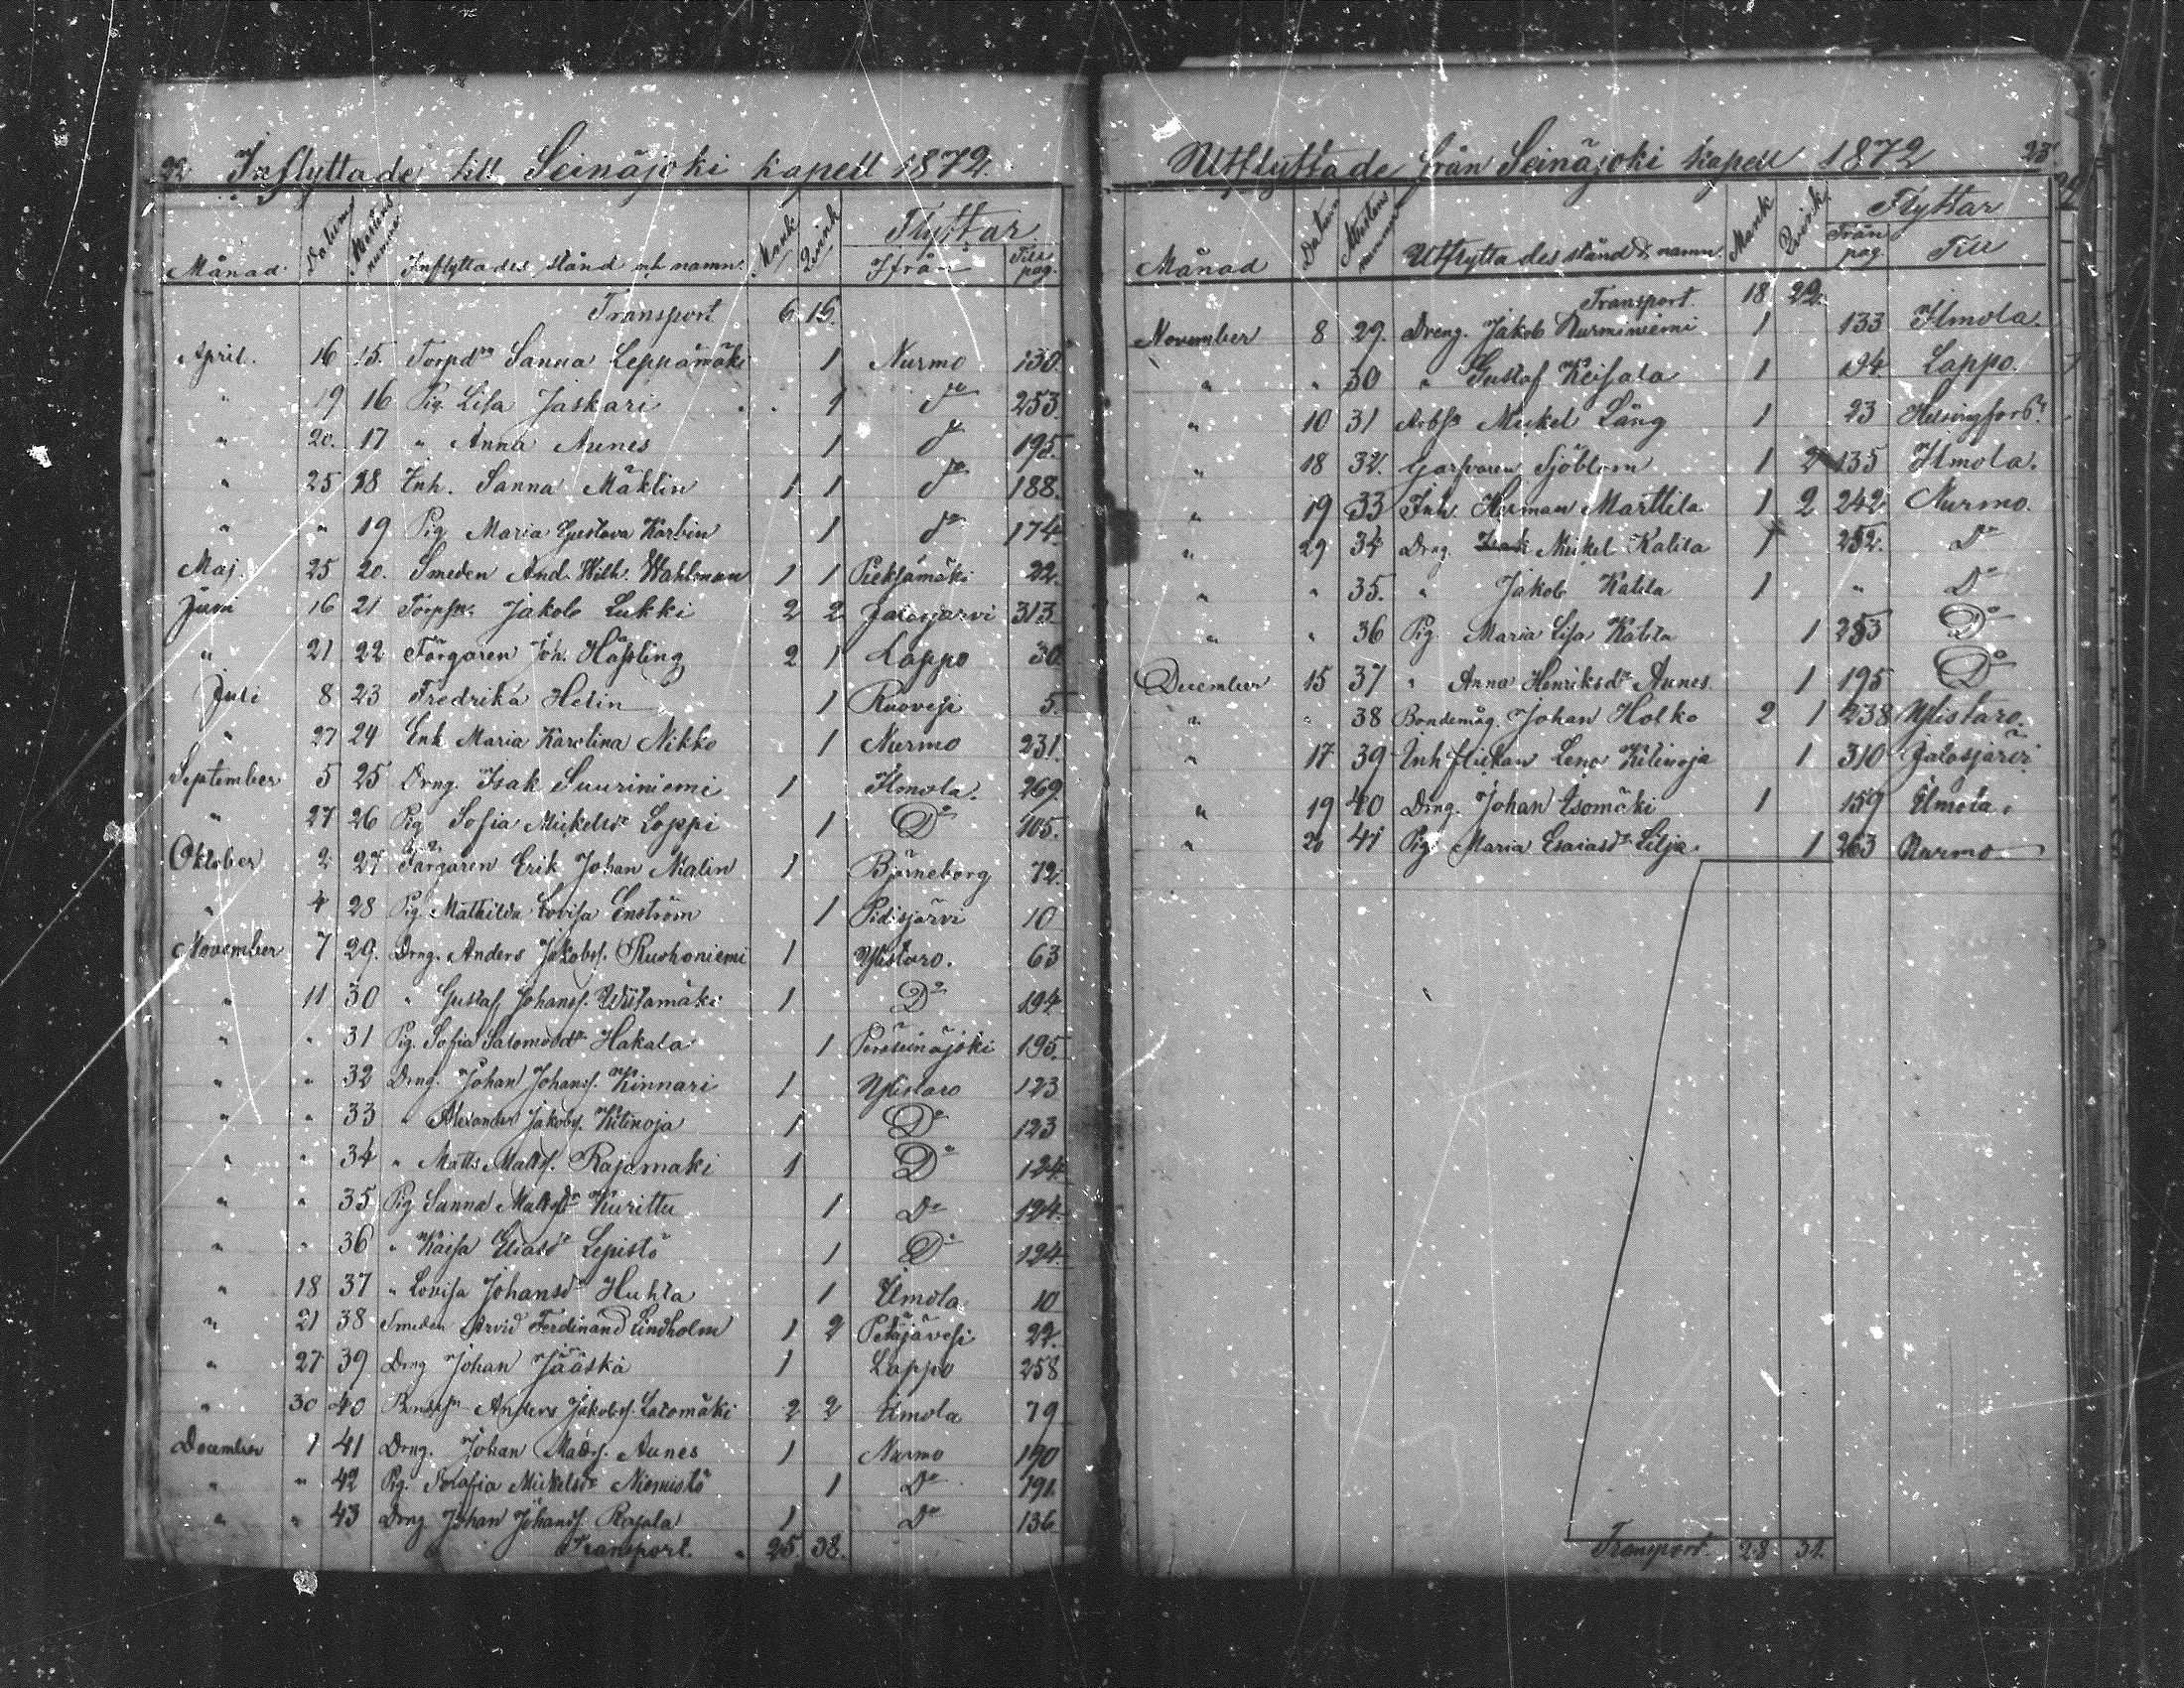 22 Inflyttade till Seinäjoki kapell 1872.
Månad Datum Attestens nummer Inflyttades stånd och namn. Mank. Qvink. Flyttar Ifrån Till pag.
Transport 6 16.
April. 16 15. Torpdr Sanna Leppämäki 1 Nurmo 130.
" 19 16 Pig. Lisa Jaskari 1 do 253
" 20. 17 " Anna Aunes 1 do 195.
" 25 18 Enh. Sanna Mäklin 1 1 do 188.
" " 19 Pig Maria Gustava Korbin 1 do 174.
Maj. 25 20. Smeden And. Wilh. Wahlman 1 1 Pieksämäki 22.
Juni 16 21 Torpsn. Jakob Lukki 2 2 Jalasjärvi 313
" 21 22 Färgaren Joh. Hassling 2 1 Lappo 30
Juli 8 23 Fredrika Helin 1 Ruovesi 5.
" 27 24 Enk. Maria Karolina Nikko 1 Nurmo 231.
September 5 25 Drng. Isak Suuriniemi 1 Ilmola. 269.
" 27 26 Pig Sofia Mickelsdr Loppi 1 Do 105.
Oktober 2 27 Färgaren Erik Johan Malin 1 Björneborg 72.
" 4 28 Pig. Mathilda Lovisa Enström 1 Pidisjärvi 10
November 7 29. Drng. Anders Jakobss. Ruohoniemi 1 Ylistaro. 63
" 11 30 " Gustaf Johanss. Wiitamäki 1 Do 194.
" " 31 Pig. Sofia Salomonsdr Hakala 1 Peräseinäjoki 195.
" " 32 Drng. Johan Johanss. Kinnari 1 Ylistaro 123
" " 33 " Alexander Jakobss. Kitinoja 1 Do 123
" " 34 " Matts Mattss. Rajamäki 1 Do 124.
" " 35 Pig Sanna Mattsdr Kurittu 1 Do 124.
" " 36 " Kaisa Eliasdr Lepistö 1 Do 124.
" 18 37 " Lovisa Johansdr Huhta 1 Ilmola 10
" 21 38 Smeden Arvid Ferdinand Lindholm 1 2 Petäjävesi 22.
" 27 39 Drng Johan Jääskä 1 Lappo 258
" 30 40 Anders Jakobss. Latomäki 2 2 Ilmola 79
December 1 41 Drng. Johan Mattss. Aunes 1 Nurmo 190
" " 42 Pig. Serafia Mickelsdr Niemistö 1 Do 191.
" " 43 Drng. Johan Johanss. Rajala 1 Do 136
Transport. " 25 38.
Utflyttade från Seinäjoki kapell 1872 23.
Månad Datum Attestens nummer Utflyttades stånd & namn. Mank. Qvink. Flyttar Från pag. Till
Transport. 18 22.
November 8 29. Dreng. Jakob Nurminiemi 1 133 Ilmola.
" " 30 " Gustaf Keisala 1 194. Lappo.
" 10 31 Arbsn Mickel Lång 1 23 Helsingfors.
" 18 32. Garfvaren Sjöblom 1 2 135 Ilmola.
" 19 33 Inh. Herman Marttila 1 2 242 Nurmo.
" 29 34 Drng. Isak Mickel Kalila 1 252. Do
" " 35. " Jakob Kalila 1 " Do
" " 36 Pig. Maria Lisa Kalila 1 253 Do
December 15 37 " Anna Henriksdr Aunes. 1 195 Do
" " 38 Bondemåg. Johan Holko 2 1 238 Ylistaro.
" 17. 39 Inh flickan Lena Kitinoja 1 310 Jalasjärvi
" 19 40 Drng. Johan Isomäki 1 159 Ilmola.
" 20 41 Pig. Maria Esaiasdr Lilja 1 263 Nurmo
Transport. 28 31.